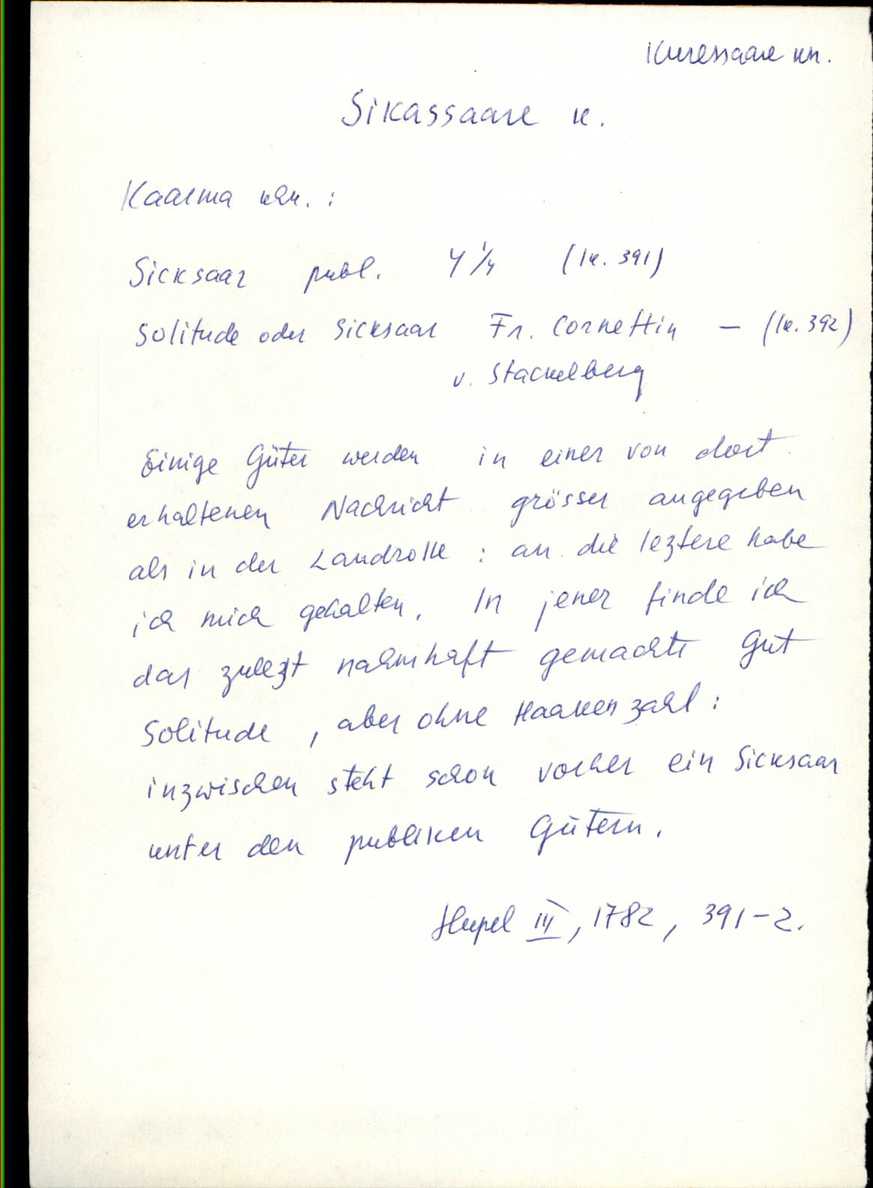 Kuressaare kn.
Sikassaare k.
Kaarma khn. :
Sicksaar publ. 4 1/4 (lk. 391)
Solitude oder Sicksaar Fr. Cornettin — (lk. 392)
v. Stackelberg
Einige Güter werden in einer von dort
erhaltenen Nachricht grösser angegeben
als in der Landrolle : an die leztere habe
ich mich gehalten. In jener finde ich
das zulezt nahmhaft gemachte Gut
Solitude, aber ohne Haakenzahl :
inzwischen steht schon vorher ein Sicksaar
unter den publiken Gütern.
Hupel III, 1782, 391-2.